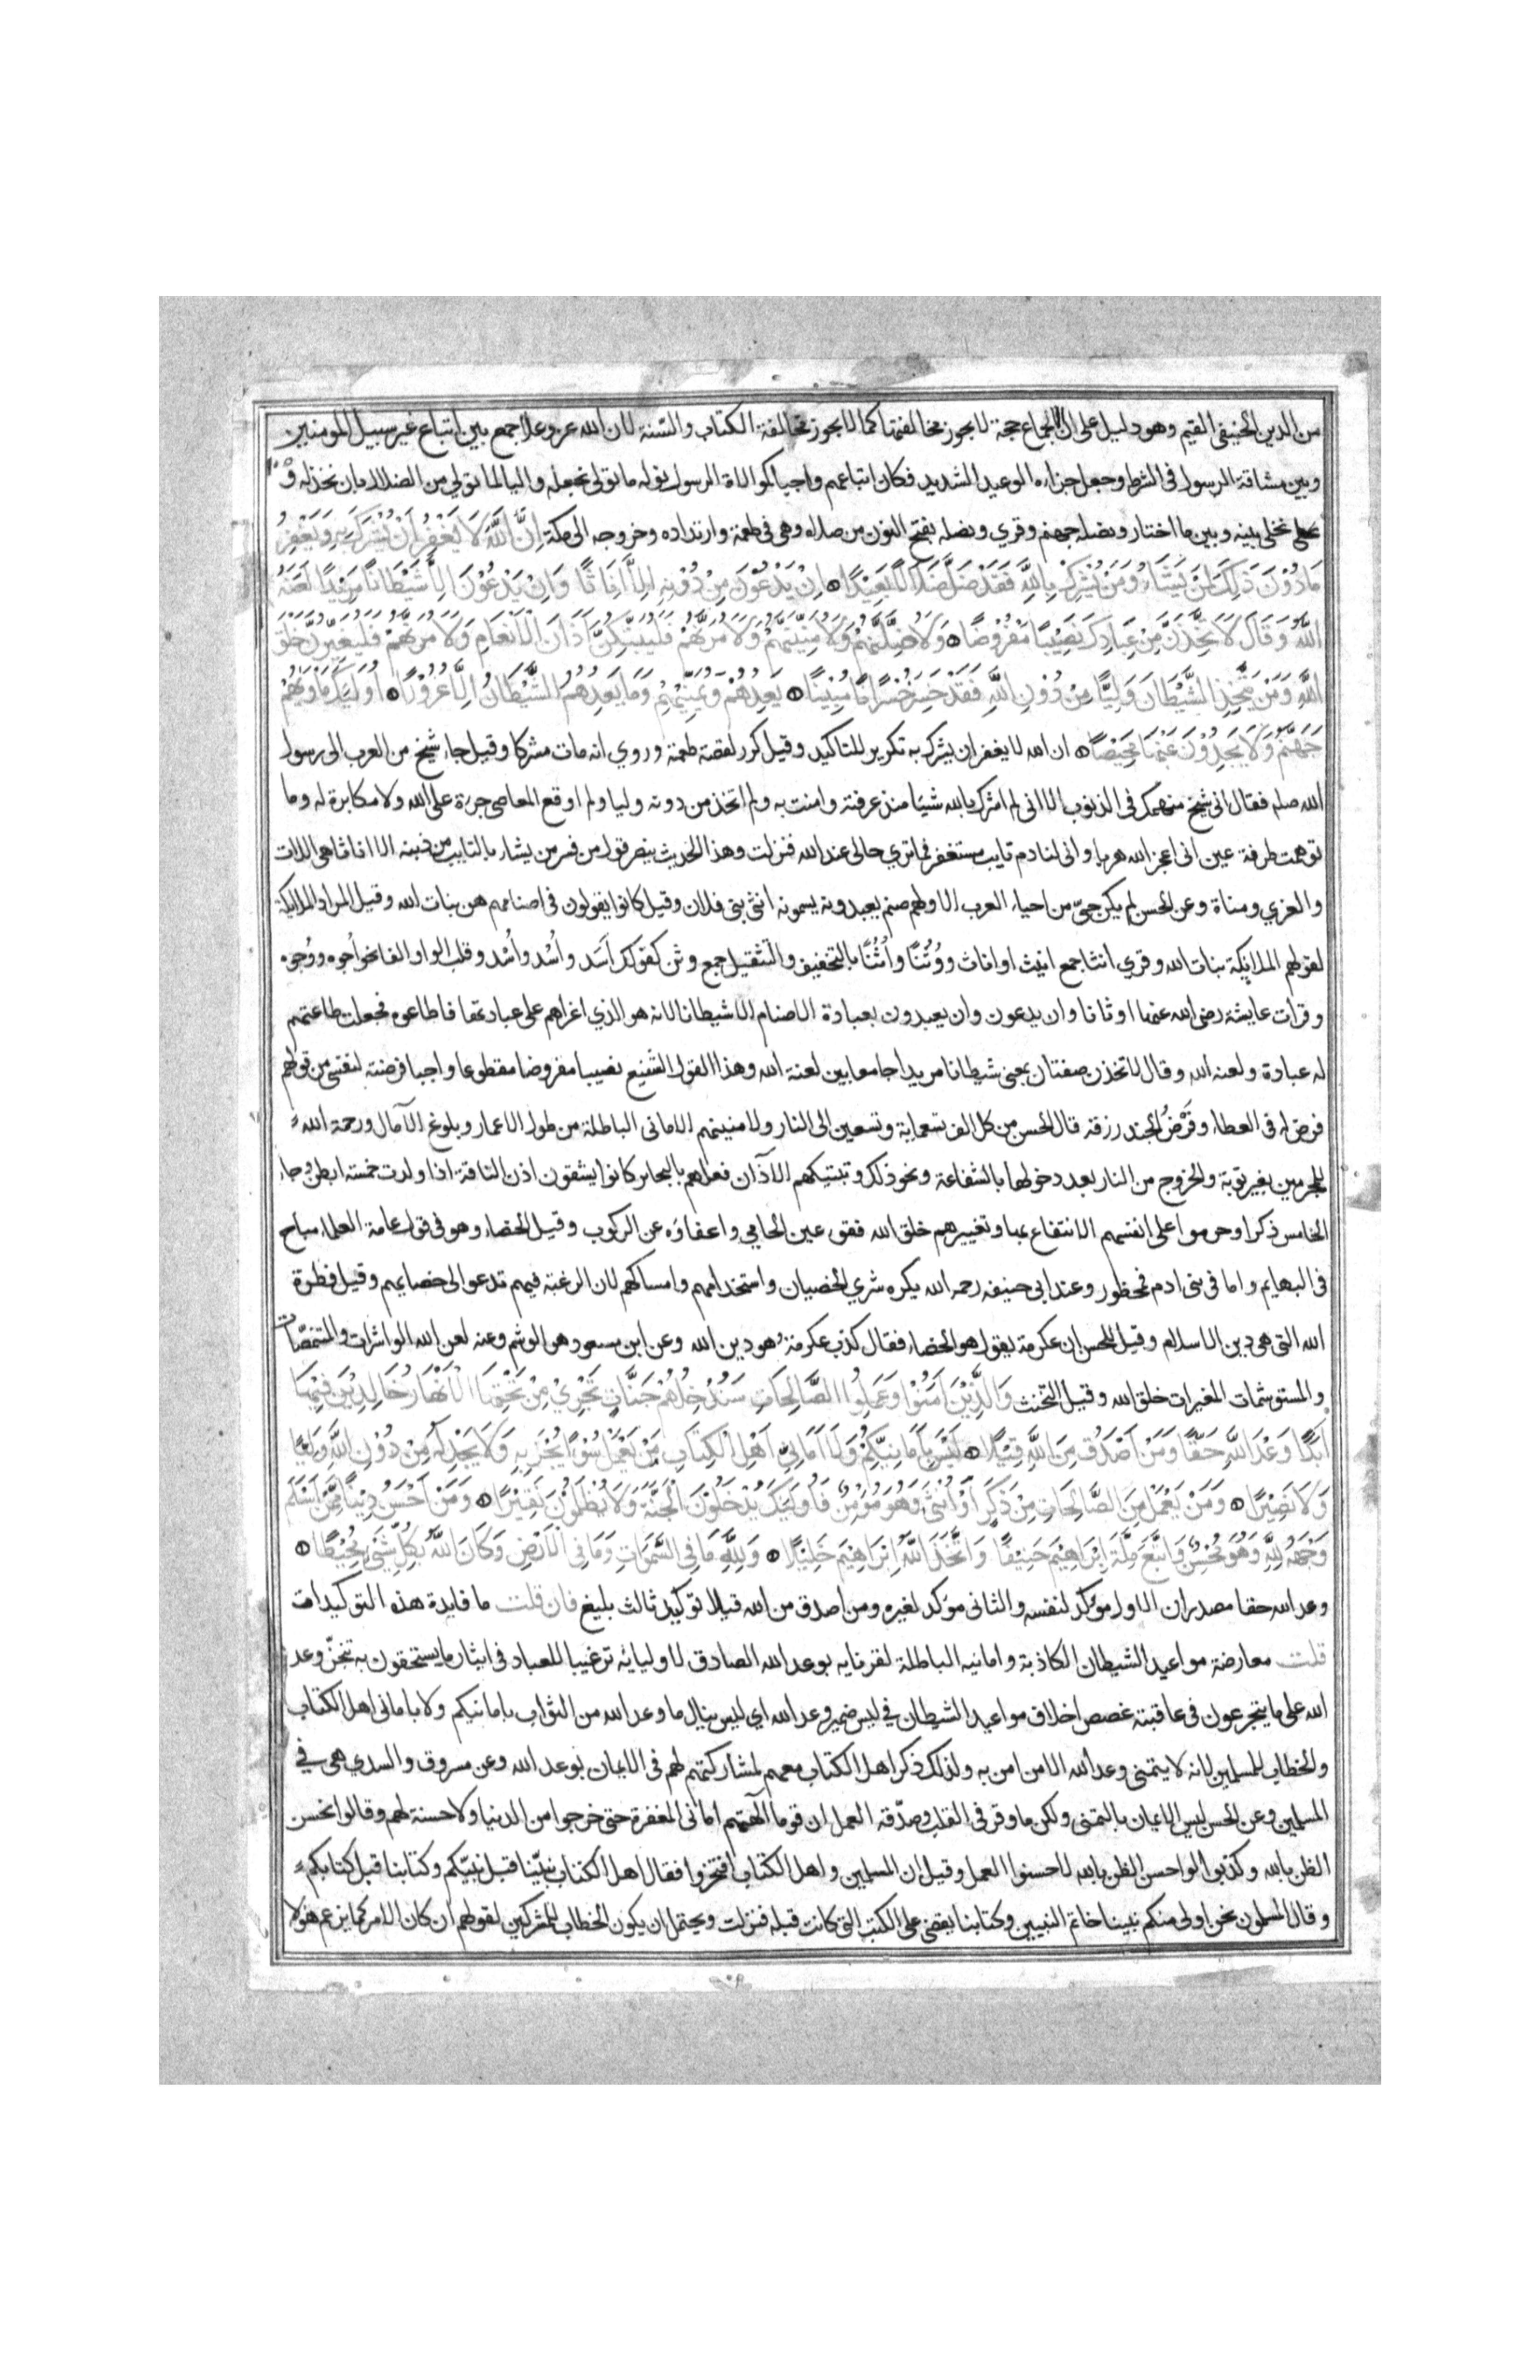 من الدين الحنيفي القيم وهو دليل على ان الاجماع حجة لا يجوز مخالفتها كما لا يجوز مخالفة الكتاب والسنة لان الله عز وعلا جمع بين اتباع غير سبيل المومنين
وبين مشاقة الرسول فى الشرط وجعل جزاءه الوعيد الشديد فكان اتباعهم واجبا كموالاة الرسول قوله ما تولى نجعله واليا لما تولي من الضلال بان نخذله و
نخلى بينه وبين ما اختار ونصله جهنم وقري ونصله بفتح النون من صلاه وهى فى طعمة وارتداده وخروجه الى مكة اِنَّ اللّٰهَ لَا يَغْفِرُ اَنْ يُشْرَكَ بِهِ وَيَغْفِرُ
مَا دُوْنَ ذٰلِكَ لِمَنْ يَشَاءُ وَمَنْ يُشْرِكْ بِاللّٰهِ فَقَدْ ضَلَّ ضَلَالًا بَعِيْدًا اِنْ يَدْعُوْنَ مِنْ دُوْنِهِ اِلَّا اِنَاثًا وَاِنْ يَدْعُوْنَ اِلَّا شَيْطَانًا مَرِيْدًا لَعَنَهُ
اللّٰهُ وَقَالَ لَاَتَّخِذَنَّ مِنْ عِبَادِكَ نَصِيْبًا مَفْرُوْضًا وَلَاُضِلَّنَّهُمْ وَلَاُمَنِّيَنَّهُمْ وَلَاٰمُرَنَّهُمْ فَلَيُبَتِّكُنَّ اٰذَانَ الْاَنْعَامِ وَلَاٰمُرَنَّهُمْ فَلَيُغَيِّرُنَّ خَلْقَ
اللّٰهِ وَمَنْ يَتَّخِذِ الشَّيْطَانَ وَلِيًّا مِنْ دُوْنِ اللّٰهِ فَقَدْ خَسِرَ خُسْرَانًا مُبِيْنًا يَعِدُهُمْ وَيُمَنِّيْهِمْ وَمَا يَعِدُهُمُ الشَّيْطَانُ اِلَّا غُرُوْرًا اُولٰئِكَ مَاْوٰىهُمْ
جَهَنَّمُ وَلَا يَجِدُوْنَ عَنْهَا مَحِيْصًا ان الله لا يغفر ان يشرك به تكرير للتاكيد وقيل كرر لقصة طعمة وروي انه مات مشركا وقيل جاء شيخ من العرب الى رسول
الله صلم فقال انى شيخ منهمك فى الذنوب الا انى لم اشرك بالله شيئا منذ عرفته وامنت به ولم اتخذ من دونه وليا ولم اوقع المعاصى جرءة على الله ولا مكابرة له وما
توهمت طرفة عين انى اعجز الله هربا وانى لنادم تايب مستغفر فما تري حالى عند الله فنزلت وهذا الحديث ينصر قول من فسر من يشاء بالتايب من ذنبه الا اناثا هى اللات
والعزي ومناة وعن الحسن لم يكن حيّ من احياء العرب الا ولهم صنم يعبدونه يسمونه انثى بنى فلان وقيل كانوا يقولون فى اصنامهم هن بنات الله وقيل المراد الملائكة
لقولهم الملايكة بنات الله وقري انثا جمع انيث او اناث ووُثُنًا واُثُنًا بالتخفيف والتثقيل جمع وثن كقولك اَسَد واُسْد واُسُد وقلب الواو الفا نحو اُجوه ووُجوه
وقرات عايشة رضى الله عنها اوثانا وان يدعون وان يعبدون بعبادة الاصنام الا شيطانا لانه هو الذي اغراهم على عبادتها فاطاعوه فجعلت طاعتهم
له عبادة ولعنه الله وقال لاتخذن صفتان بمعنى شيطانا مريدا جامعا بين لعنة الله وهذا القول الشنيع نصيبا مفروضا مقطوعا واجبا فرضته لنفسى من قولهم
فرض له فى العطاء وفَرْضُ الجند رزقه قال الحسن من كل الف تسعماية وتسعين الى النار ولامنينهم الامانى الباطلة من طول الاعمار وبلوغ الآمال ورحمة الله
للمجرمين بغير توبة والخروج من النار بعد دخولها بالشفاعة ونحو ذلك وتبتيكهم الآذان فعلهم بالبحائر كانوا يشقون اذن الناقة اذا ولدت خمسة ابطن وجاء
الخامس ذكرا وحرموا على انفسهم الانتفاع بها وتغييرهم خلق الله فقو عين الحامي واعفاؤه عن الركوب وقيل الخصاء وهو فى قول عامة العلماء مباح
فى البهايم واما فى بنى ادم فمحظور وعند ابى حنيفه رحمه الله يكره شري الخصيان واستخدامهم وامساكهم لان الرغبة فيهم تدعو الى خصايهم وقيل فطرة
الله التى هى دين الاسلام وقيل للحسن ان عكرمة يقول هو الخصاء فقال كذب عكرمة هو دين الله وعن ابن مسعود هو الوشم وعنه لعن الله الواشرات والمتنمّصات
والمستوشمات المغيرات خلق الله وقيل التخنث وَالَّذِيْنَ اٰمَنُوْا وَعَمِلُوا الصَّالِحَاتِ سَنُدْخِلُهُمْ جَنَّاتٍ تَجْرِيْ مِنْ تَحْتِهَا الْاَنْهَارُ خَالِدِيْنَ فِيْهَا
اَبَدًا وَعْدَ اللّٰهِ حَقًّا وَمَنْ اَصْدَقُ مِنَ اللّٰهِ قِيْلًا لَيْسَ بِاَمَانِيِّكُمْ وَلَا اَمَانِيِّ اَهْلِ الْكِتَابِ مَنْ يَعْمَلْ سُوْءًا يُجْزَ بِهِ وَلَا يَجِدْ لَهُ مِنْ دُوْنِ اللّٰهِ وَلِيًّا
وَلَا نَصِيْرًا وَمَنْ يَعْمَلْ مِنَ الصَّالِحَاتِ مِنْ ذَكَرٍ اَوْ اُنْثٰى وَهُوَ مُؤْمِنٌ فَاُولٰئِكَ يُدْخَلُوْنَ الْجَنَّةَ وَلَا يُظْلَمُوْنَ نَقِيْرًا وَمَنْ اَحْسَنُ دِيْنًا مِمَّنْ اَسْلَمَ
وَجْهَهُ لِلّٰهِ وَهُوَ مُحْسِنٌ وَاتَّبَعَ مِلَّةَ اِبْرَاهِيْمَ حَنِيْفًا وَاتَّخَذَ اللّٰهُ اِبْرَاهِيْمَ خَلِيْلًا وَلِلّٰهِ مَا فِي السَّمٰوَاتِ وَمَا فِي الْاَرْضِ وَكَانَ اللّٰهُ بِكُلِّ شَيْءٍ مُحِيْطًا
وعد الله حقا مصدران الاول مؤكد لنفسه والثانى مؤكد لغيره ومن اصدق من الله قيلا توكيد ثالث بليغ فان قلت ما فايدة هذه التوكيدات
قلت معارضة مواعيد الشيطان الكاذبة وامانيه الباطلة لقرنايه بوعد الله الصادق لاوليائه ترغيبا للعباد فى ايثار ما يستحقون به تنجّز وعد
الله على ما يتجرعون فى عاقبته غصص اخلاف مواعيد الشيطان في ليس ضمير وعد الله اي ليس ينال ما وعد الله من الثواب بامانيكم ولا بامانى اهل الكتاب
والخطاب للمسلمين لانه لا يتمنى وعد الله الا من امن به ولذلك ذكر اهل الكتاب معهم لمشاركتهم لهم فى الايمان بوعد الله وعن مسروق والسدي هى في
المسلمين وعن الحسن ليس الايمان بالتمنى ولكن ما وقر فى القلب وصدّقه العمل ان قوما الهتهم امانى المغفرة حتى خرجوا من الدنيا ولا حسنة لهم وقالوا نحسن
الظن بالله وكذبوا لو احسن الظن بالله لاحسنوا العمل وقيل ان المسلمين واهل الكتاب افتخروا فقال اهل الكتاب نبيّنا قبل نبيّكم وكتابنا قبل كتابكم
وقال المسلمون نحن اولى منكم نبينا خاتم النبيين وكتابنا يقضى على الكتب التى كانت قبله فنزلت ويحتمل ان يكون الخطاب للمشركين لقولهم ان كان الامر كما يزعم هؤلا